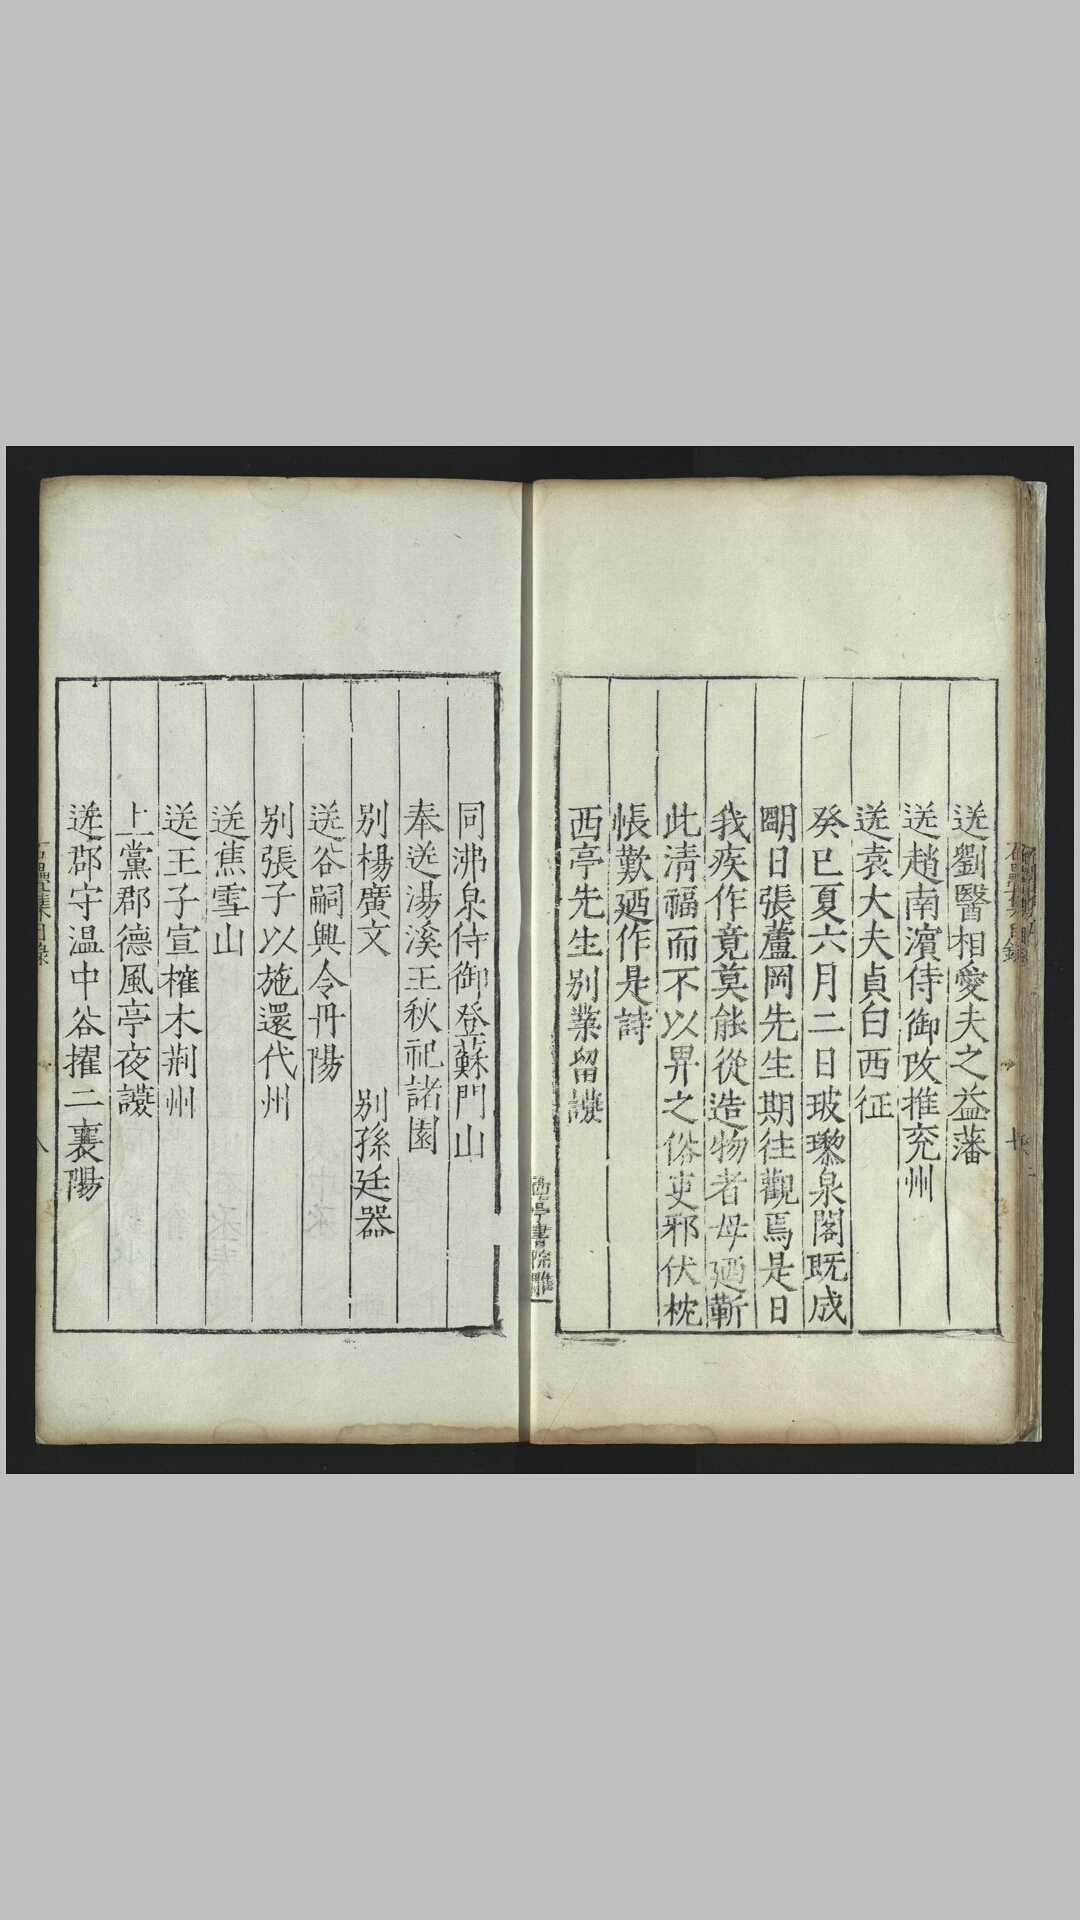 送劉醫相愛夫之益藩
送趙南濱侍御改推兖州
送袁大夫貞白西征
癸巳夏六月二日玻瓈泉閣既成
明日張蘆岡先生期往觀焉是日
我疾作竟莫能從造物者毋廼靳
此清福而不以畀之俗吏邪伏枕
悵歎廼作是詩
西亭先生别業留讌
西亭書院雕
同沸泉侍御登蘇門山
奉送湯溪王秋祀諸園
别楊廣文　别孫廷器
送谷嗣興令丹陽
别張子以施還代州
送焦雪山
送王子宣榷木荆州
上黨郡德風亭夜讌
送郡守温中谷擢二襄陽